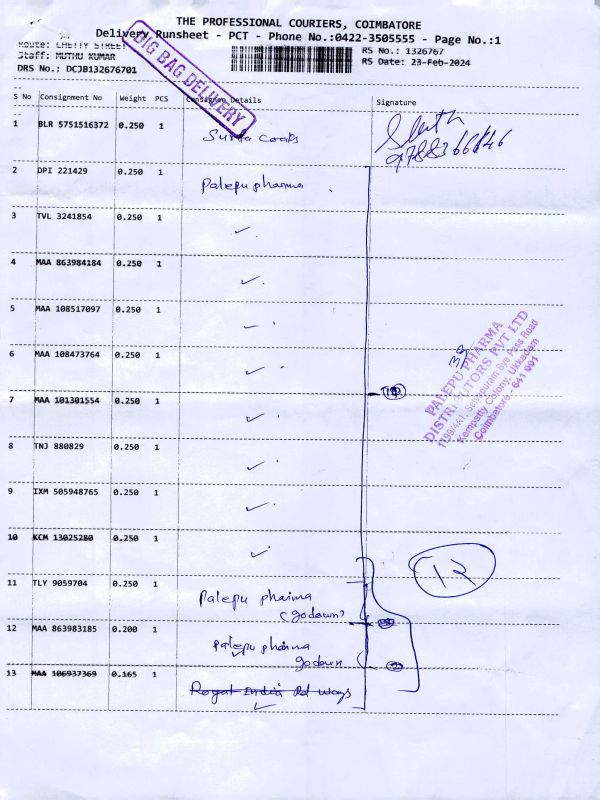 THE PROFESSIONAL COURIERS, COIMBATORE
Delivery Runsheet - PCT - Phone No.:0422-3505555 - Page No.:1
Route: CHETTY STREET
Staff: MUTHU KUMAR
DRS No.: DCJB132676701
BIG BAG DELIVERY
RS No.: 1326767
RS Date: 23-Feb-2024
S No Consignment No Weight PCS Consignee Details Signature
1 BLR 5751516372 0.250 1
2 DPI 221429 0.250 1 Palepu pharma
3 TVL 3241854 0.250 1 ✓
4 MAA 863984184 0.250 1 ✓
5 MAA 108517097 0.250 1 ✓
6 MAA 108473764 0.250 1 ✓
7 MAA 101301554 0.250 1 ✓
8 TNJ 880829 0.250 1 ✓
9 IXM 505948765 0.250 1 ✓
10 KCM 13025280 0.250 1 ✓
11 TLY 9059704 0.250 1 Palepu pharma
(godown)
12 MAA 863983185 0.200 1 Palepu pharma
godown
13 MAA 106937369 0.165 1 Royal India
✓
PALEPU PHARMA
DISTRIBUTORS PVT LTD
Kempatty Colony, Ukkadam
Coimbatore - 641 001
12